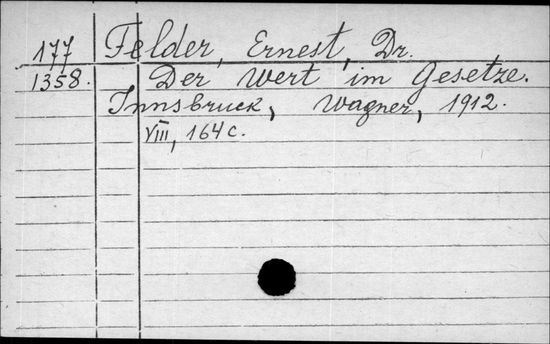 177 Felder, Ernest, Dr.
1358. Der Wert im Gesetze.
Innsbruck, Wagner, 1912.
VIII, 164 c.